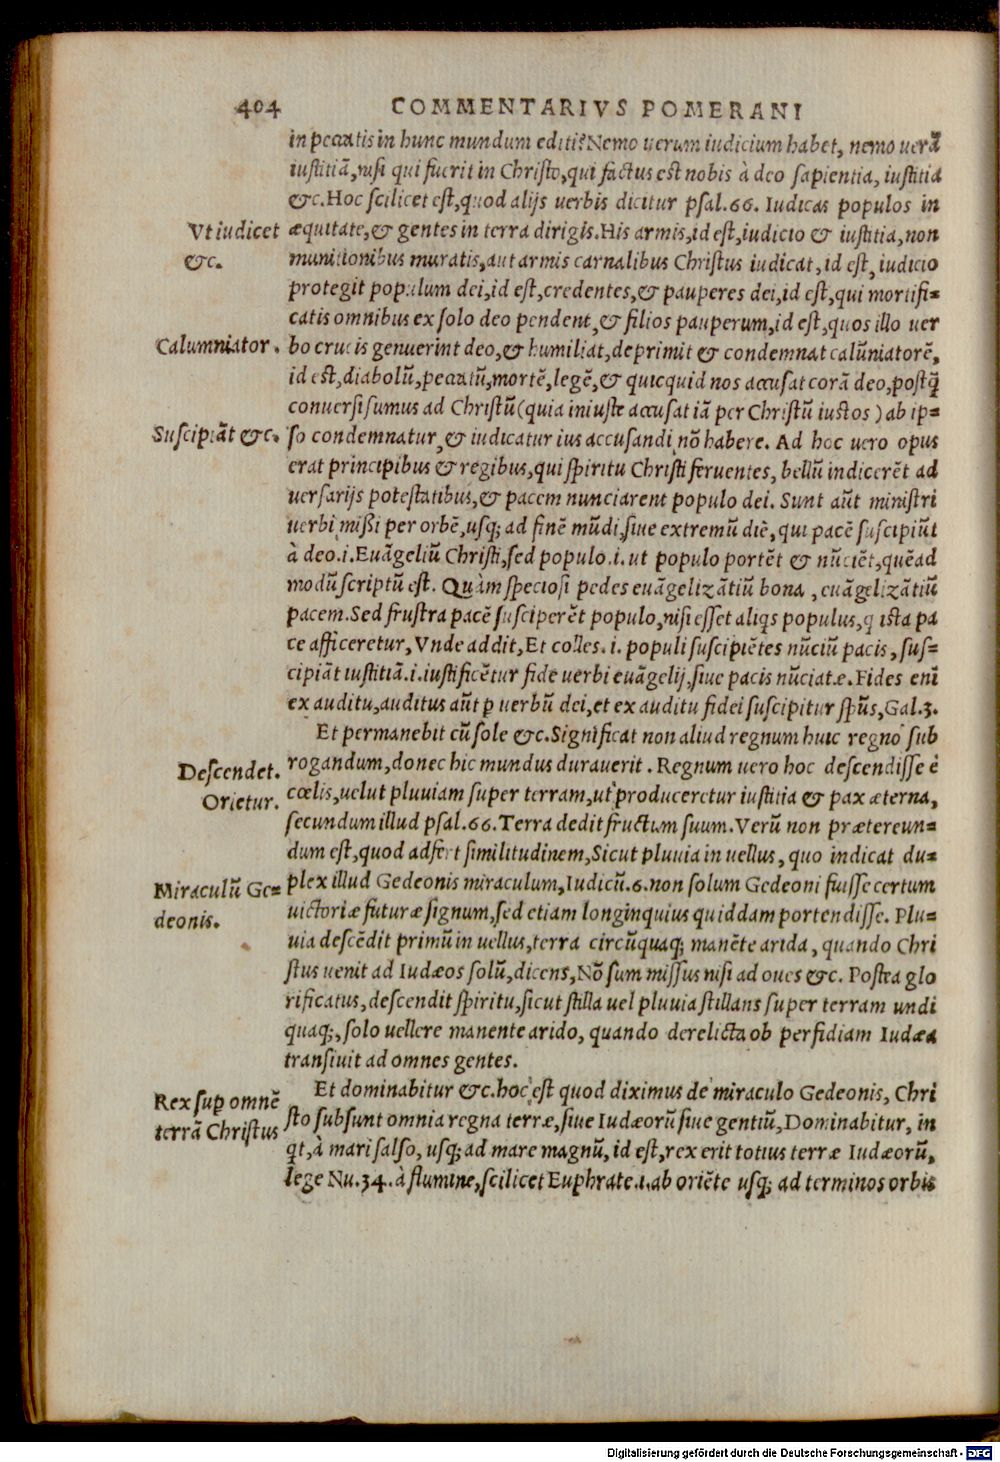 404 COMMENTARIVS POMERANI
in peccatis in hunc mundum editi? Nemo uerum iudicium habet, nemo uerã
iustitiã, nisi qui fuerit in Christo, qui factus est nobis à deo sapientia, iustitia
&c. Hoc scilicet est, quod alijs uerbis dicitur psal. 66. Iudicas populos in
Vt iudicet
&c.
æquitate, & gentes in terra dirigis. His armis, id est, iudicio & iustitia, non
munitionibus muratis, aut armis carnalibus Christus iudicat, id est, iudicio
protegit populum dei, id est, credentes, & pauperes dei, id est, qui mortifi=
catis omnibus ex solo deo pendent, & filios pauperum, id est, quos illo uer
Calumniator.
bo crucis genuerint deo, & humiliat, deprimit & condemnat calũniatorẽ,
id est, diabolũ, peccatũ, mortẽ, legẽ, & quicquid nos accusat corã deo, postq̃
conuersi sumus ad Christũ (quia iniuste accusat iã per Christũ iustos) ab ip=
Suscipiãt &c.
so condemnatur, & iudicatur ius accusandi nõ habere. Ad hoc uero opus
erat principibus & regibus, qui spiritu Christi feruentes, bellũ indicerẽt ad
uersarijs potestatibus, & pacem nunciarent populo dei. Sunt aũt ministri
uerbi missi per orbẽ, usq; ad finẽ mũdi, siue extremũ diẽ, qui pacẽ suscipiũt
à deo .i. Euãgeliũ Christi, sed populo .i. ut populo portẽt & nũciẽt, quẽad
modũ scriptũ est. Quàm speciosi pedes euãgelizãtiũ bona, euãgelizãtiũ
pacem. Sed frustra pacẽ susciperẽt populo, nisi esset aliqs populus, q ista pa
ce afficeretur, Vnde addit, Et colles .i. populi suscipiẽtes nũciũ pacis, sus=
cipiãt iustitiã .i. iustificẽtur fide uerbi euãgelij, siue pacis nũciatæ. Fides enĩ
ex auditu, auditus aũt ꝑ uerbũ dei, et ex auditu fidei suscipitur spũs, Gal. 3.
Et permanebit cũ sole &c. Significat non aliud regnum huic regno sub
Descendet.
Orietur.
rogandum, donec hic mundus durauerit. Regnum uero hoc descendisse è
cœlis, uelut pluuiam super terram, ut produceretur iustitia & pax æterna,
secundum illud psal. 66. Terra dedit fructum suum. Verũ non prætereun=
dum est, quod adfert similitudinem, Sicut pluuia in uellus, quo indicat du=
Miraculũ Ge=
deonis.
plex illud Gedeonis miraculum, Iudicũ. 6. non solum Gedeoni fuisse certum
uictoriæ futuræ signum, sed etiam longinquius quiddam portendisse. Plu=
uia descẽdit primũ in uellus, terra circũquaq; manẽte arida, quando Chri
stus uenit ad Iudæos solũ, dicens, Nõ sum missus nisi ad oues &c. Postea glo
rificatus, descendit spiritu, sicut stilla uel pluuia stillans super terram undi
quaq;, solo uellere manente arido, quando derelicta ob perfidiam Iudæa
transiuit ad omnes gentes.
Et dominabitur &c. hoc est quod diximus de miraculo Gedeonis, Chri
Rex suꝑ omnẽ
terrã Christus
sto subsunt omnia regna terræ, siue Iudæorũ siue gentiũ, Dominabitur, in
qt, à mari salso, usq; ad mare magnũ, id est, rex erit totius terræ Iudæorũ,
lege Nu. 34. à flumine, scilicet Euphrate .i. ab oriẽte usq; ad terminos orbis
Digitalisierung gefördert durch die Deutsche Forschungsgemeinschaft - DFG